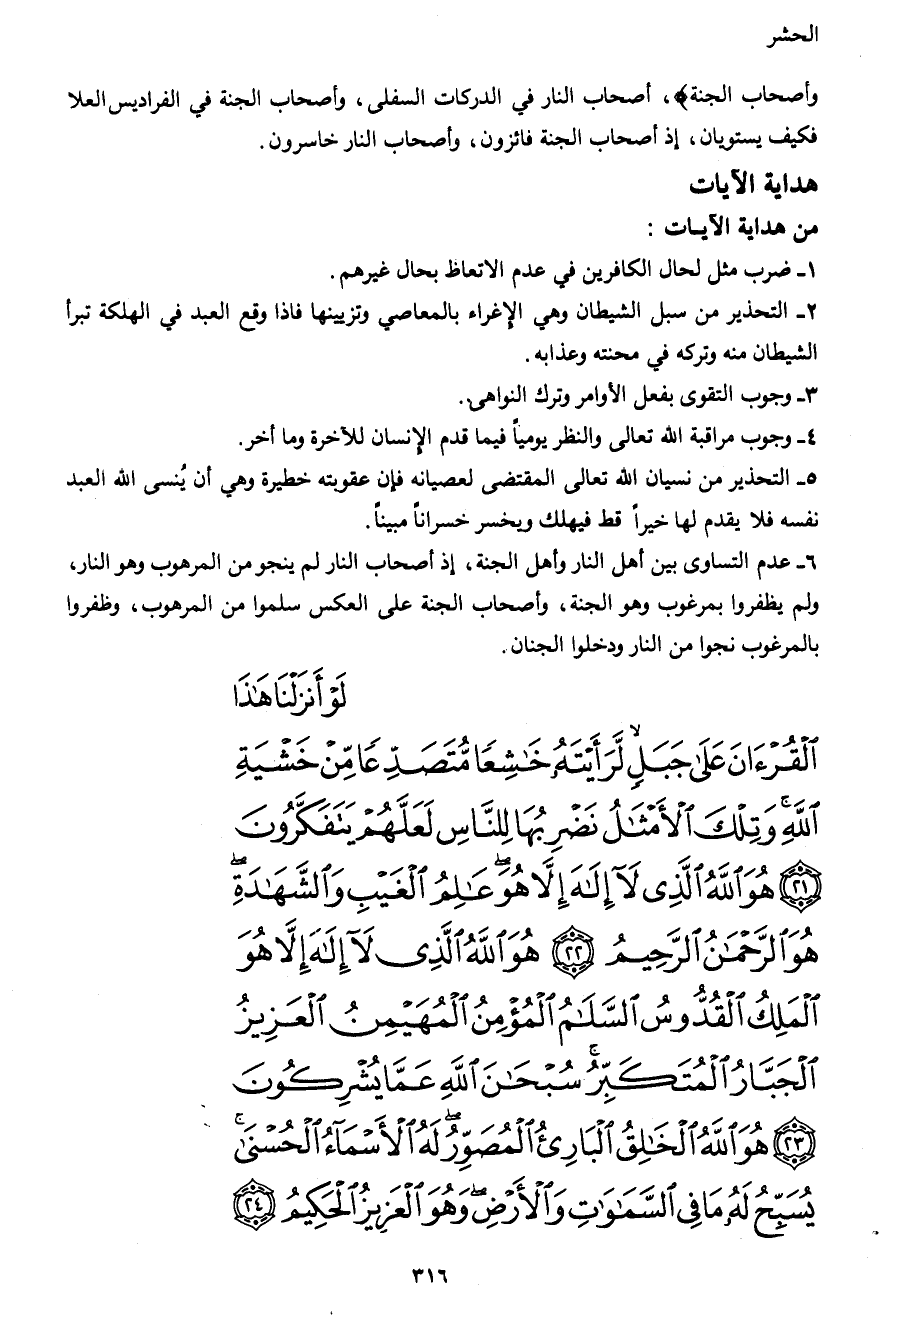 الحشر
وأصحاب الجنة﴾، أصحاب النار في الدركات السفلى، وأصحاب الجنة في الفراديس العلا
فكيف يستويان، إذ أصحاب الجنة فائزون، وأصحاب النار خاسرون.
هداية الآيات
من هداية الآيـات :
١ـ ضرب مثل لحال الكافرين في عدم الاتعاظ بحال غيرهم.
٢ـ التحذير من سبل الشيطان وهي الإغراء بالمعاصي وتزيينها فاذا وقع العبد في الهلكة تبرأ
الشيطان منه وتركه في محنته وعذابه.
٣ـ وجوب التقوى بفعل الأوامر وترك النواهى.
٤ـ وجوب مراقبة الله تعالى والنظر يومياً فيما قدم الإنسان للآخرة وما أخر.
٥ـ التحذير من نسيان الله تعالى المقتضى لعصيانه فإن عقوبته خطيرة وهي أن يُنسى الله العبد
نفسه فلا يقدم لها خيراً قط فيهلك ويخسر خسراناً مبيناً.
٦ـ عدم التساوى بين أهل النار وأهل الجنة، إذ أصحاب النار لم ينجو من المرهوب وهو النار،
ولم يظفروا بمرغوب وهو الجنة، وأصحاب الجنة على العكس سلموا من المرهوب، وظفروا
بالمرغوب نجوا من النار ودخلوا الجنان.
لَوْ أَنزَلْنَا هَٰذَا
ٱلْقُرْءَانَ عَلَىٰ جَبَلٍۢ لَّرَأَيْتَهُۥ خَٰشِعًا مُّتَصَدِّعًا مِّنْ خَشْيَةِ
ٱللَّهِ ۚ وَتِلْكَ ٱلْأَمْثَٰلُ نَضْرِبُهَا لِلنَّاسِ لَعَلَّهُمْ يَتَفَكَّرُونَ
٢١ هُوَ ٱللَّهُ ٱلَّذِى لَآ إِلَٰهَ إِلَّا هُوَ ۖ عَٰلِمُ ٱلْغَيْبِ وَٱلشَّهَٰدَةِ ۖ
هُوَ ٱلرَّحْمَٰنُ ٱلرَّحِيمُ ٢٢ هُوَ ٱللَّهُ ٱلَّذِى لَآ إِلَٰهَ إِلَّا هُوَ
ٱلْمَلِكُ ٱلْقُدُّوسُ ٱلسَّلَٰمُ ٱلْمُؤْمِنُ ٱلْمُهَيْمِنُ ٱلْعَزِيزُ
ٱلْجَبَّارُ ٱلْمُتَكَبِّرُ ۚ سُبْحَٰنَ ٱللَّهِ عَمَّا يُشْرِكُونَ
٢٣ هُوَ ٱللَّهُ ٱلْخَٰلِقُ ٱلْبَارِئُ ٱلْمُصَوِّرُ ۖ لَهُ ٱلْأَسْمَآءُ ٱلْحُسْنَىٰ ۚ
يُسَبِّحُ لَهُۥ مَا فِى ٱلسَّمَٰوَٰتِ وَٱلْأَرْضِ ۖ وَهُوَ ٱلْعَزِيزُ ٱلْحَكِيمُ ٢٤
٣١٦